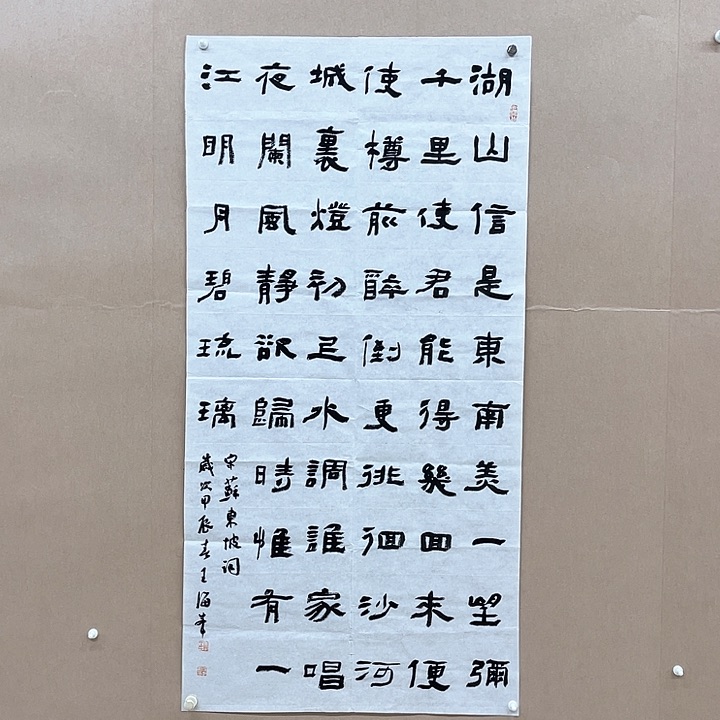 湖山信是東南美一望彌
千里使君能得幾回來便
使樽前醉倒更徘徊沙河
城裏燈初上水調誰家唱
夜闌風靜欲歸時惟有一
江明月碧琉璃
宋蘇東坡詞
歲次甲辰春王海